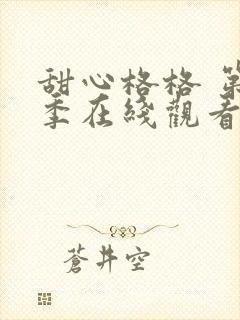 甜心格格 第
季在綫觀看
蒼井空